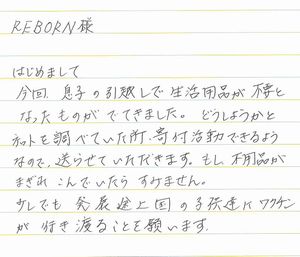 REBORN様
はじめまして
今回、息子の引越しで生活用品が不要と
なったものがでてきました。どうしようかと
ネットを調べていた所、寄付活動できるよう
なので、送らせていただきます。もし、不用品が
まぎれこんでいたらすみません。
少しでも発展途上国の子供達にワクチン
が行き渡ることを願います。